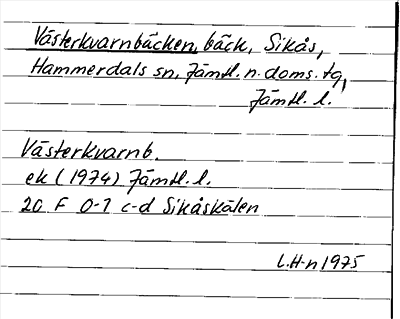 Västerkvarnbäcken, bäck, Sikås,
Hammerdals sn, Jämtl. n. doms. tg,
Jämtl. l.
Västerkvarnb.
ek (1974) Jämtl. l.
20 F 0-1 c-d Sikåskälen
L.H-n 1975